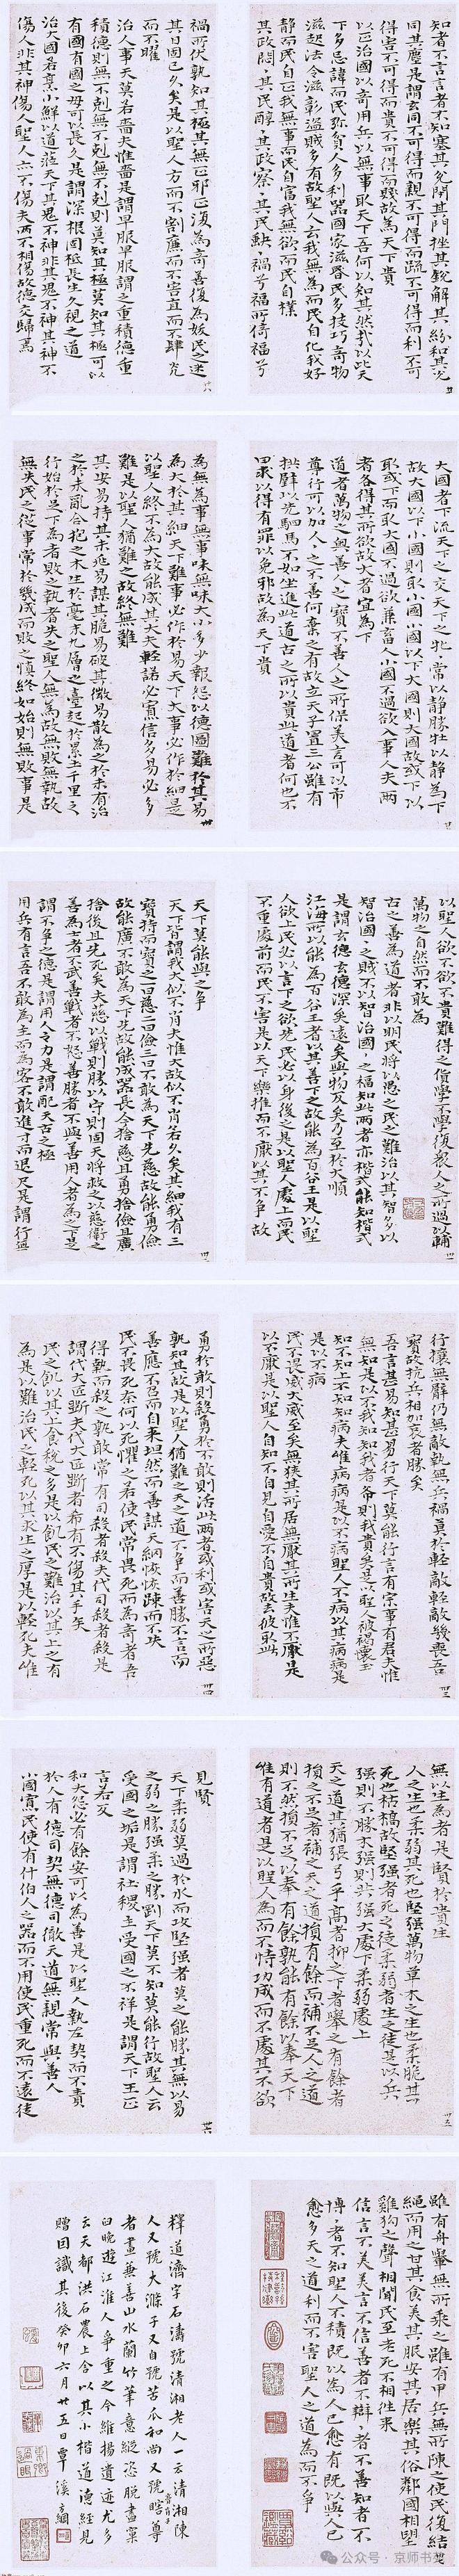 知者不言言者不知塞其兌閉其門挫其銳解其紛和其光
同其塵是謂玄同不可得而親不可得而疏不可得而利不可
得而害不可得而貴不可得而賤故為天下貴
以正治國以奇用兵以無事取天下吾何以知其然哉以此天
下多忌諱而民彌貧人多利器國家滋昏民多技巧奇物
滋起法令滋彰盜賊多有故聖人云我無為而民自化我好
靜而民自正我無事而民自富我無欲而民自樸
其政悶〻其民醇〻其政察〻其民缺〻禍兮福所倚福兮
禍所伏孰知其極其無正邪正復為奇善復為妖民之迷
其日固已久矣是以聖人方而不割廉而不害直而不肆光
而不曜
治人事天莫若嗇夫惟嗇是謂早服早服謂之重積德重
積德則無不剋無不剋則莫知其極莫知其極可以
有國有國之母可以長久是謂深根固柢長生久視之道
治大國若烹小鮮以道蒞天下其鬼不神非其鬼不神其神不
傷人非其神傷人聖人亦不傷夫兩不相傷故德交歸焉
廿六
大國者下流天下之交天下之牝〻常以靜勝牡以靜為下
故大國以下小國則取小國小國以下大國則取大國故或下以
取或下而取大國不過欲兼畜人小國不過欲入事人夫兩
者各得其所欲故大者宜為下
道者萬物之奧善人之寶不善人之所保美言可以市
尊行可以加人〻之不善何棄之有故立天子置三公雖有
拱璧以先駟馬不如坐進此道古之所以貴此道者何也不
曰求以得有罪以免邪故為天下貴
為無為事無事味無味大小多少報怨以德圖難於其易
為大於其細天下難事必作於易天下大事必作於細是
以聖人終不為大故能成其大夫輕諾必寡信多易必多
難是以聖人猶難之故終無難
其安易持其未兆易謀其脆易破其微易散為之於未有治
之於未亂合抱之木生於毫末九層之臺起於累土千里之
行始於足下為者敗之執者失之聖人無為故無敗無執故
無失民之從事常於幾成而敗之慎終如始則無敗事是
以聖人欲不欲不貴難得之貨學不學復眾人之所過以輔
萬物之自然而不敢為
古之善為道者非以明民將以愚之民之難治以其智多以
智治國〻之賊不以智治國〻之福知此兩者亦楷式能知楷式
是謂玄德玄德深矣遠矣與物反矣乃至於大順
江海所以能為百谷王者以其善下之故能為百谷王是以聖
人欲上民必以言下之欲先民必以身後之是以聖人處上而民
不重處前而民不害是以天下樂推而不厭以其不爭故
天下莫能與之爭
天下皆謂我大似不肖夫惟大故似不肖若久矣其細我有三
寶持而寶之一曰慈二曰儉三曰不敢為天下先慈故能勇儉
故能廣不敢為天下先故能成器長今捨慈且勇捨儉且廣
捨後且先死矣夫慈以戰則勝以守則固天將救之以慈衛之
善為士者不武善戰者不怒善勝者不與善用人者為之下是
謂不爭之德是謂用人之力是謂配天古之極
用兵有言吾不敢為主而為客不敢進寸而退尺是謂行無
行攘無臂仍無敵執無兵禍莫於輕敵輕敵幾喪吾
寶故抗兵相加哀者勝矣
吾言甚易知甚易行天下莫能知莫能行言有宗事有君夫惟
無知是以不我知知我者希則我貴矣是以聖人被褐懷玉
知不知上不知知病夫唯病病是以不病聖人不病以其病病是
是以不病
民不畏威大威至矣無狹其所居無厭其所生夫惟不厭是
以不厭是以聖人自知不自見自愛不自貴故去彼取此
卅三
勇於敢則殺勇於不敢則活此兩者或利或害天之所惡
孰知其故是以聖人猶難之天之道不爭而善勝不言而
善應不召而自來坦然而善謀天網恢恢疎而不失
民不畏死奈何以死懼之若使民常畏死而為奇者吾
得執而殺之孰敢常有司殺者殺夫代司殺者殺是
謂代大匠斲夫代大匠斲者希有不傷其手矣
民之飢以其上食稅之多是以飢民之難治以其上之有
為是以難治民之輕死以其求生之厚是以輕死夫唯
卅四
無以生為者是賢於貴生
人之生也柔弱其死也堅强萬物草木之生也柔脆其
死也枯槁故堅强者死之徒柔弱者生之徒是以兵
强則不勝木强則共强大處下柔弱處上
天之道其猶張弓乎高者抑之下者舉之有餘者
損之不足者補之天之道損有餘而補不足人之道
則不然損不足以奉有餘孰能有餘以奉天下
唯有道者是以聖人為而不恃功成而不處其不欲
卅五
見賢
天下柔弱莫過於水而攻堅强者莫之能勝其無以易
之弱之勝强柔之勝剛天下莫不知莫能行故聖人云
受國之垢是謂社稷主受國之不祥是謂天下王正
言若反
和大怨必有餘怨安可以為善是以聖人執左契而不責
於人有德司契無德司徹天道無親常與善人
小國寡民使有什伯人之器而不用使民重死而不遠徒
卅六
雖有舟轝無所乘之雖有甲兵無所陳之使民復結
繩而用之甘其食美其服安其居樂其俗鄰國相望
雞狗之聲相聞民至老死不相往來
信言不美美言不信善者不辯〻者不善知者不
博〻者不知聖人不積既以為人己愈有既以與人己
愈多天之道利而不害聖人之道為而不爭
釋道濟字石濤號清湘老人一云清湘陳
人又號大滌子又自號苦瓜和尚又號瞎尊
者畫兼善山水蘭竹筆意縱恣脫盡窠
臼晚遊江淮人爭重之今維揚遺迹尤多
云天都洪石農上舍以其小楷道德經見
贈因識其後癸卯六月廿五日覃溪
公众号·京师书画